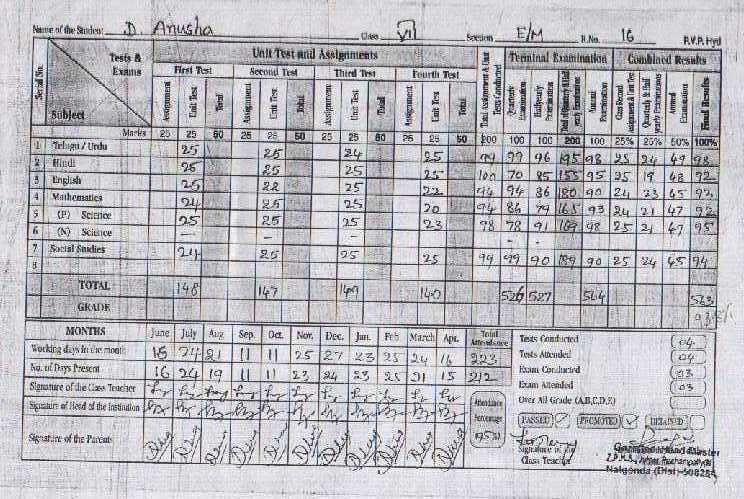 Name of the Student: D. Anusha Class VII Section E/M R.No. 16 P.V.P. Hyd
Serial No. Tests & Exams Subject Unit Test and Assignments Terminal Examination Combined Results
First Test Second Test Third Test Fourth Test
Assignment Unit Test Total Assignment Unit Test Total Assignment Unit Test Total Assignment Unit Test Total Total Assignment & Unit Tests Conducted Quarterly Examination Halfyearly Examination Annual Examination Final Results
Marks 25 25 50 25 25 50 25 25 50 25 25 50 200 100 100 200 100 25% 25% 50% 100%
1 Telugu / Urdu 25 25 24 25 99 99 96 195 98 25 24 49 98
2 Hindi 25 25 25 25 100 70 85 155 95 25 19 48 92
3 English 25 22 25 22 94 94 86 180 90 24 23 45 92
4 Mathematics 24 25 25 20 94 86 79 165 93 24 21 47 92
5 (P) Science 25 25 25 23 98 78 91 169 98 25 21 47 95
6 (N) Science - - - - -
7 Social Studies 24 25 25 25 99 99 90 189 90 25 24 45 94
8
TOTAL 148 147 149 140 526 527 564 563
GRADE
MONTHS June July Aug Sep. Oct. Nov. Dec. Jan Feb March Apr. Total Attendance
Working days in the month 16 24 21 11 11 25 27 23 25 24 16 223
No. of Days Present 16 24 19 11 11 23 24 23 25 21 15 212
Signature of the Class Teacher
Signature of Head of the Institution
Signature of the Parents
Attendance Percentage
Tests Conducted 04
Tests Attended 04
Exam Conducted 03
Exam Attended 03
Over All Grade (A,B,C,D,E)
PASSED PROMOTED DETAINED
Signature of the Class Teacher
Nalgonda (Dist)-508284